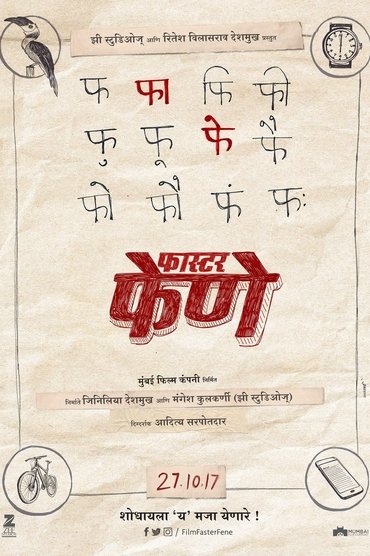 झी स्टुडिओज् आणि रितेश विलासराव देशमुख प्रस्तुत
फ फा फि फी
फु फू फे फै
फो फौ फं फः
फास्टर
फेणे
मुंबई फिल्म कंपनी निर्मित
निर्माते जिनिलिया देशमुख आणि मंगेश कुलकर्णी (झी स्टुडिओज्)
दिग्दर्शक आदित्य सरपोतदार
27.10.17
शोधायला ‘य’ मजा येणारे !
/ FilmFasterFene
MUMBAI